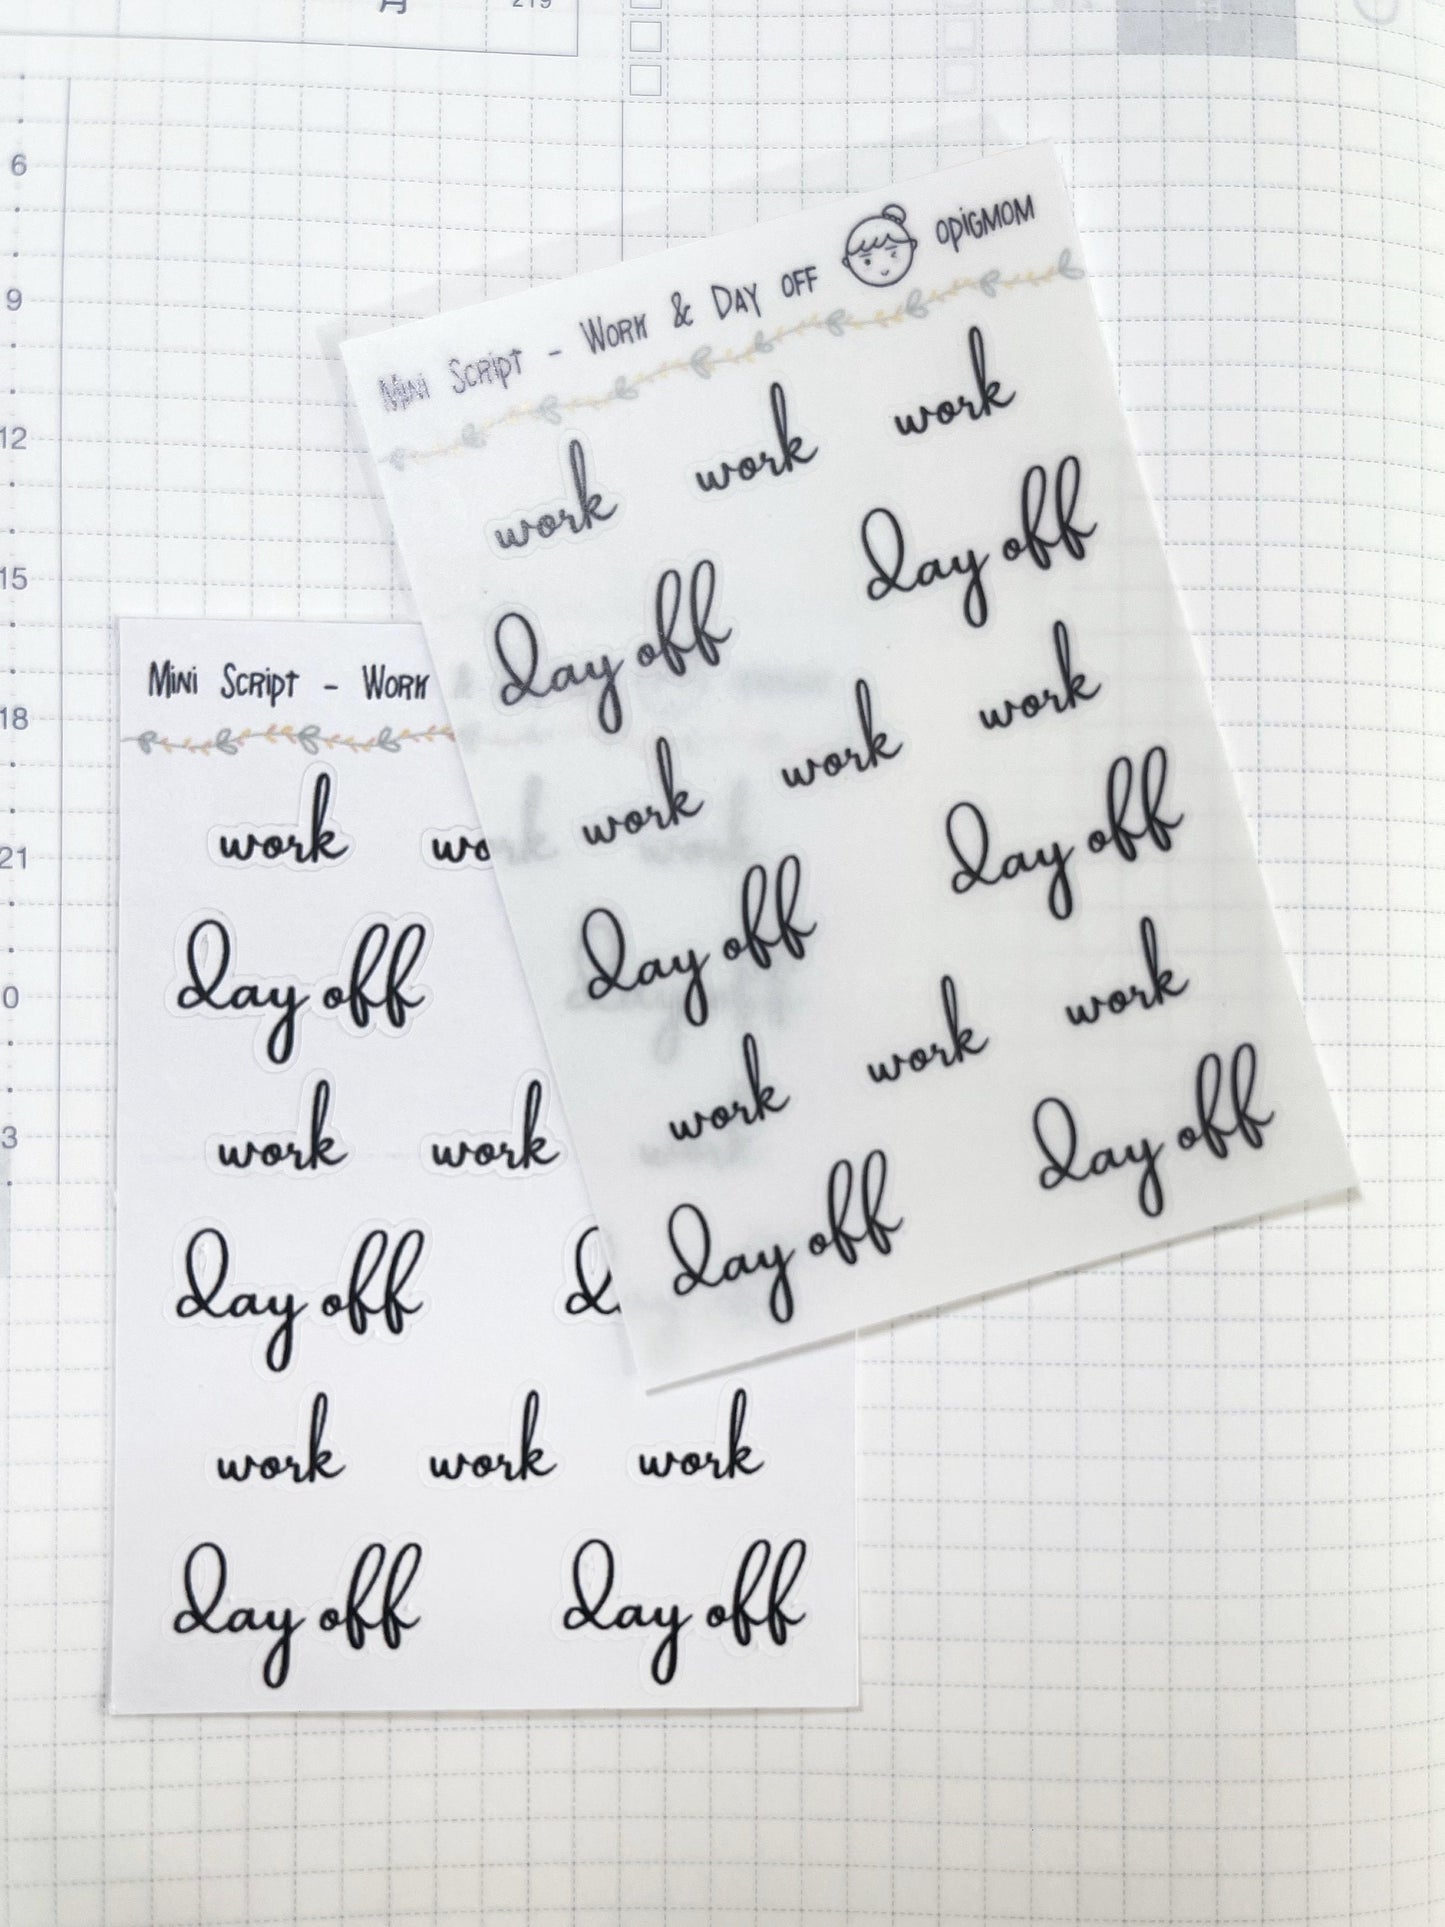 月
219
6
9
12
15
18
21
0
3
Mini Script - Work & Day off opigmom
work work work
day off day off
work work work
day off day off
work work work
day off day off
Mini Script - Work
work wo
day off
work work
day off d
work work work
day off day off